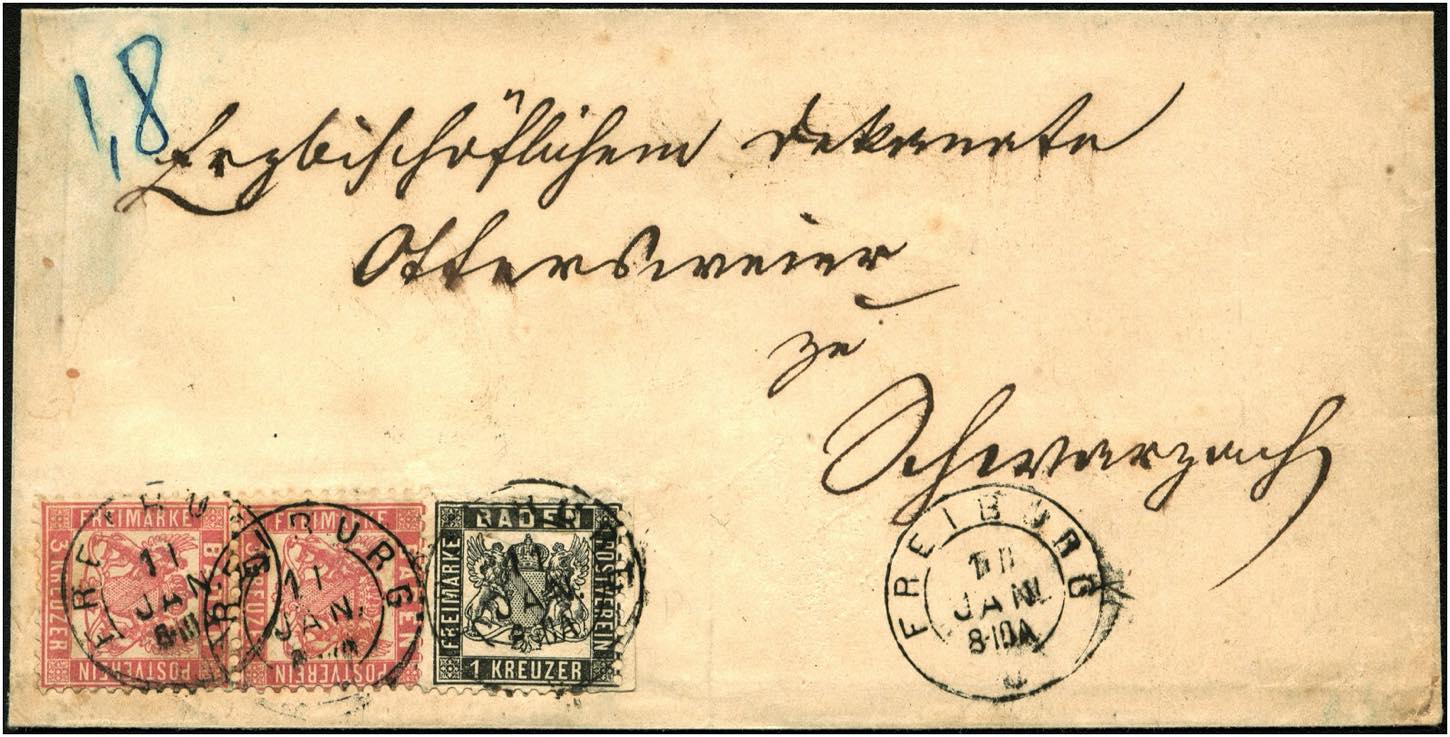 1,8
Erzbischöflichem Dekanate
Ottersweier
zu
Schwarzach
FREIMARKE
3 KREUZER
POSTVEREIN
FREIMARKE
BADEN
3 KREUZER
POSTVEREIN
BADEN
FREIMARKE
POSTVEREIN
1 KREUZER
FREIBURG
11
JAN.
8-10
FREIBURG
11
JAN.
JAN.
8-10A
FREIBURG
11
JAN.
8-10A